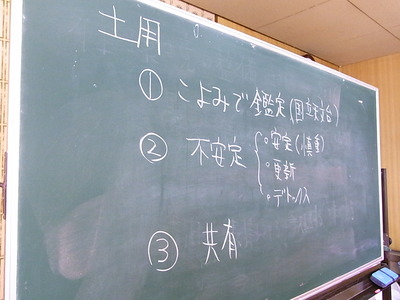 土用
① こよみで鑑定(国立天文台)
② 不安定 { 。安定(慎重)
。更新
。デトックス
③ 共有